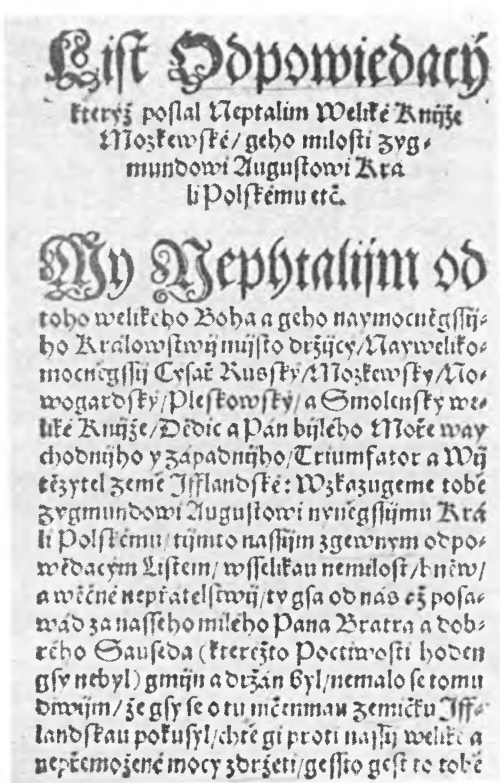 List Odpowiedacý
kterýž poslal Neptalim Weliké Knijže
Mozkewské/ geho milosti zyg⸗
mundowi Augustowi Kra
li Polskému etč.
My Nephtalijm od
toho welikeho Boha a geho naymocněgssij⸗
ho Kralowstwij mijsto držijcý/ Nayweliko⸗
mocněgssij Cysař Russký/ Mozkewský/ No⸗
wogardský/ Pleskowský/ a Smolenský we⸗
liké Knijže/ Dědic a Pán bijlého Moře way
chodnijho y západnijho/ Triumfator a Wij
tězytel země Jfflandské: Wzkazugeme tobě
zygmundowi Augustowi nyněgssijmu Krá
li Polskému/ tijmto nassijm zgewnym odpo⸗
wědacým Listem/ wsselikau nemilost/ hněw/
a wěčné nepřatelstwij/ ty gsa od nás až posa⸗
wád za nasseho milého Pana Bratra a dob⸗
rého Sauseda (kterežto Poctiwosti hoden
gsy nebyl) gmijn a držán byl/ nemalo se tomu
diwijm/ že gsy se o tu mčennau zemičku Jff⸗
landskau pokusyl/ chtě gi proti nassij weliké a
nepřemožené mocy zdržeti/ gessto gest to tobě